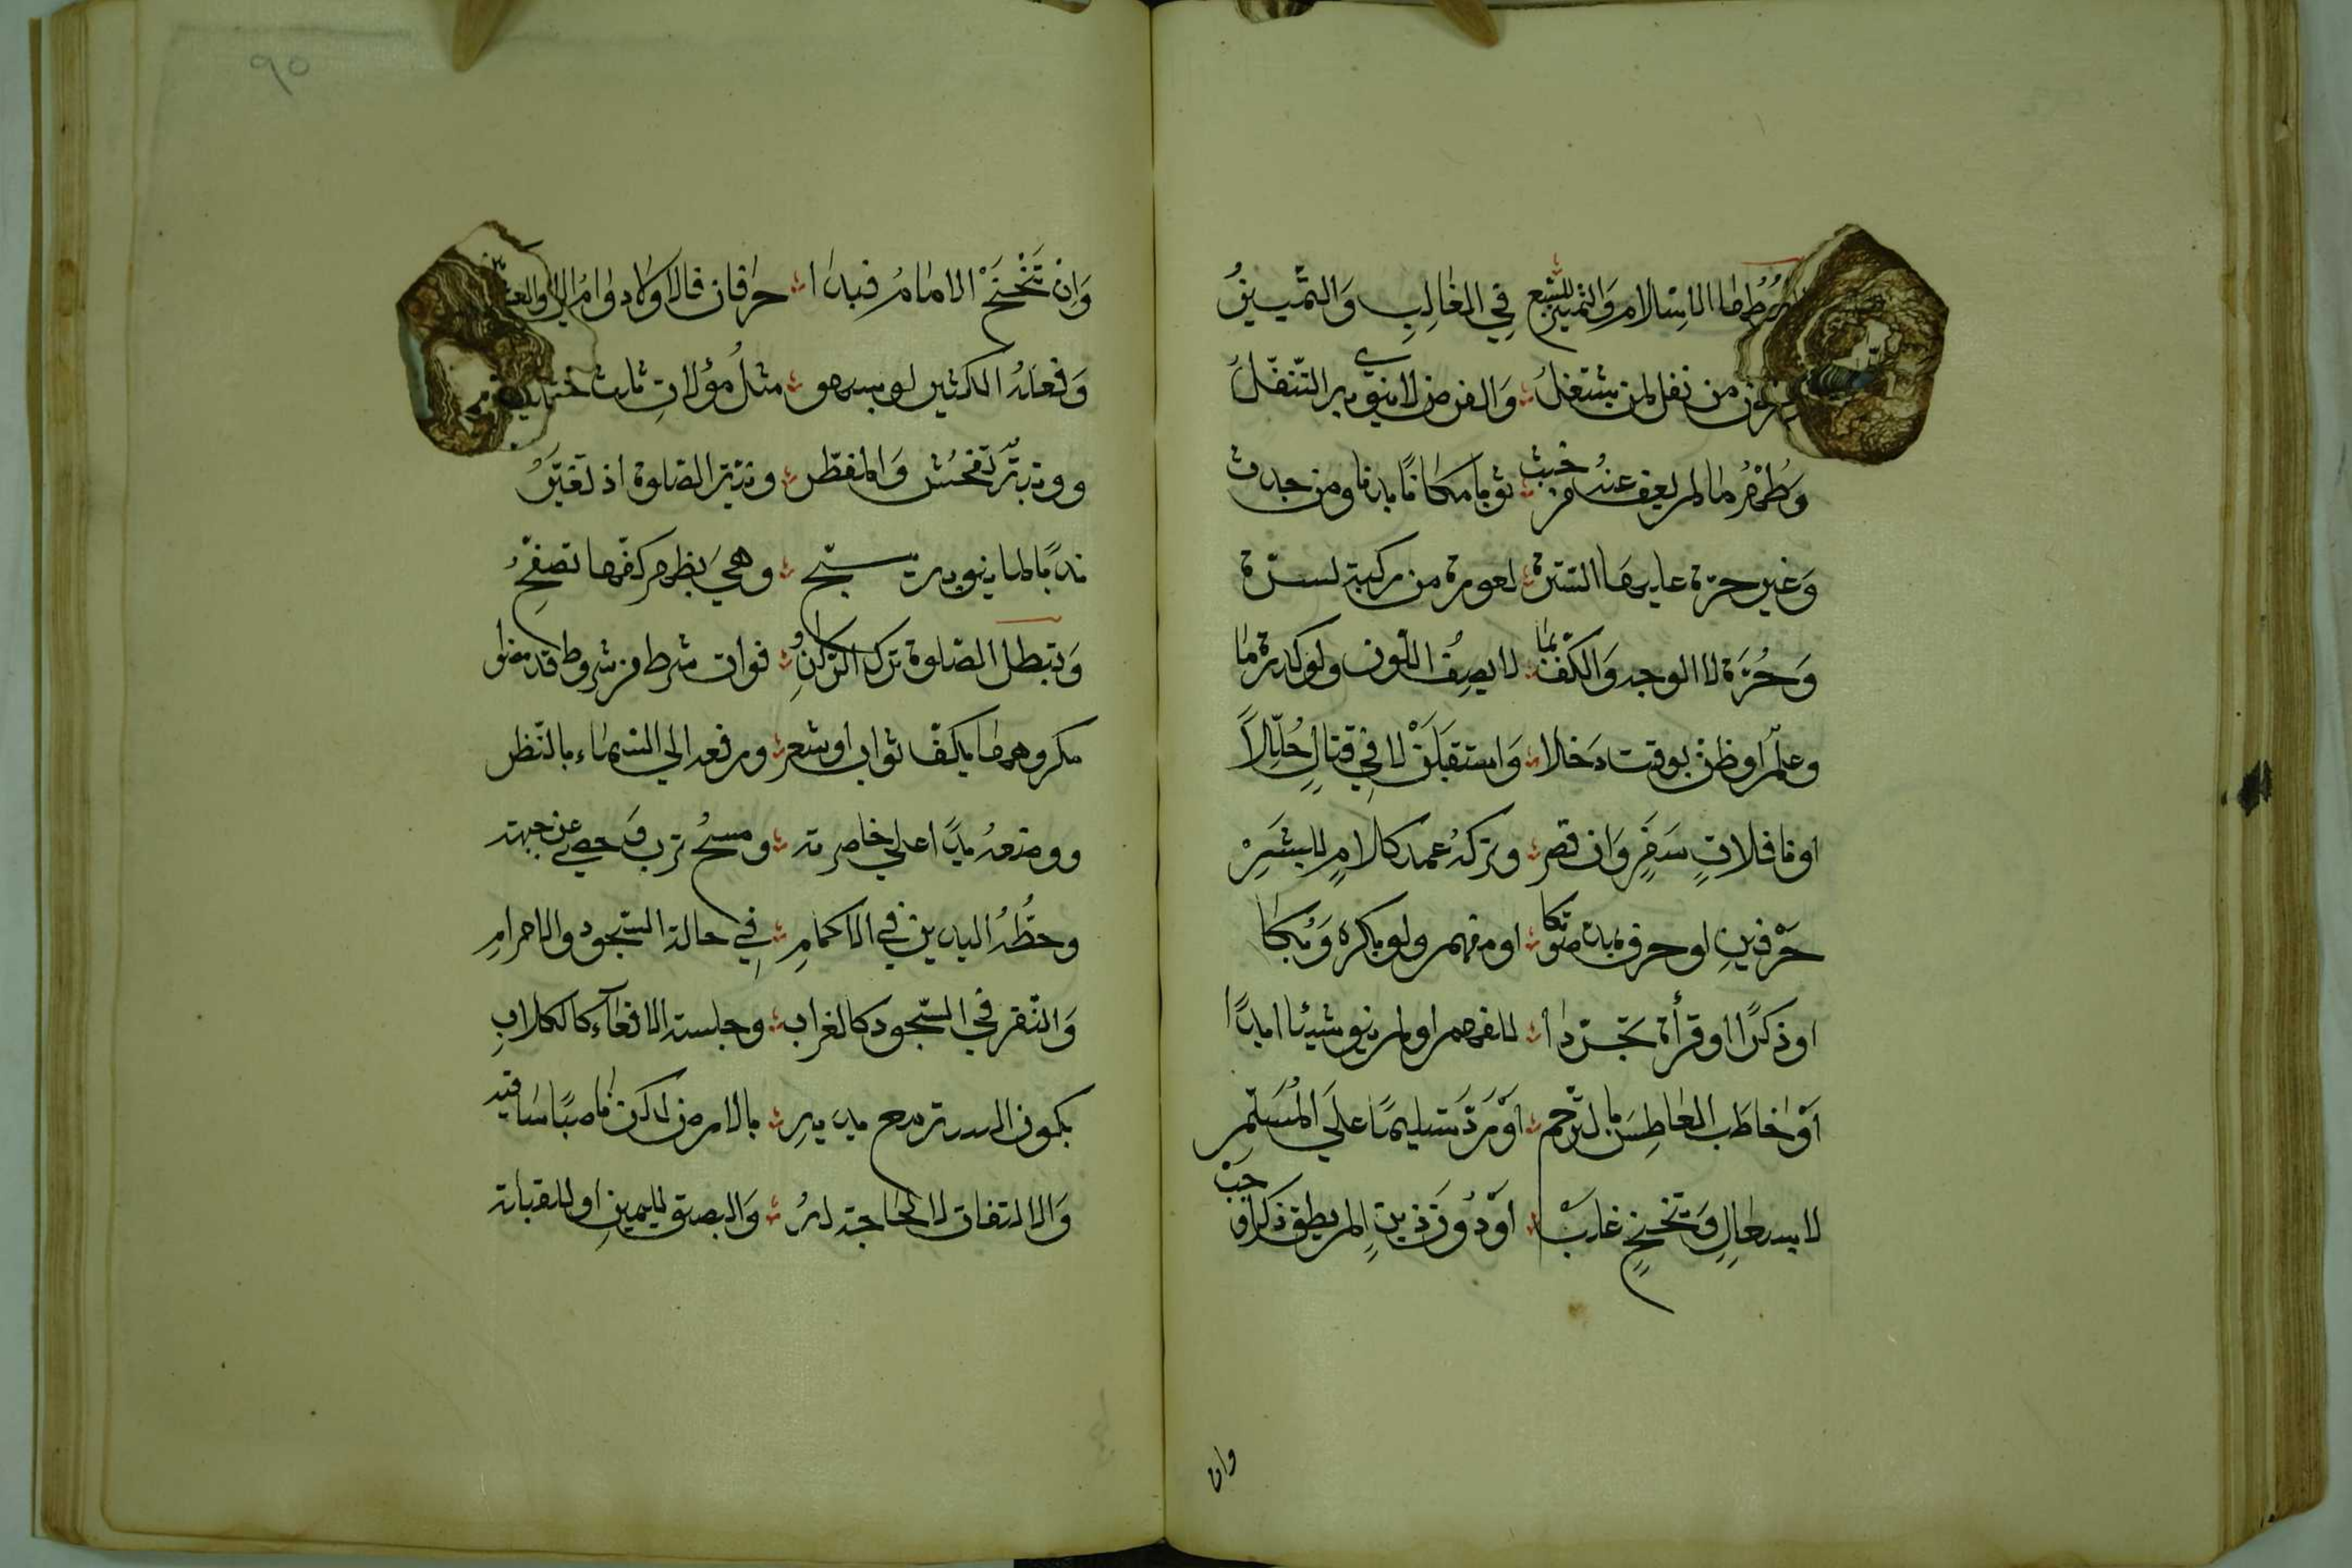 شروطها الاسلام والتمييز للسبع في الغالب والتمييز
فرض من نفل لمن يشتغل والفرض لا ينوي به التنفل
وطهر ما لم يعف عنه من خبث ثوبا مكانا بدنا ومن حدث
وغير حرة عليها السترة لعورة من ركبة لسرة
وحرة لا الوجه والكف بما لا يصف اللون ولو كدرة ما
وعلم او ظن بوقت دخلا واستقبلن لا في قتال حللا
او نافلات سفر وان قصر وتركه عمد كلام للبشر
حرفين او حرف بمد صوتكا او مفهم ولو بكره وبكا
او ذكرا او قرأة تجردا للفهم او لم ينو شيئا ابدا
او خاطب العاطس بالترحم او رد تسليما على المسلم
لا بسعال وتنحنح غلب او دون ذين لم يطق ذكرا وجب
وان
٩٥
وان تنحنح الامام فبدا حرفان فالاولى دوام الاقتدا
وفعله الكثير لو بسهو مثل موالات ثلاث خطو
ووثبة تفحش والمفطر ونية الصلوة اذ تغير
ندبا لما ينوبه يسبح وهي بظهر كفها تصفح
وتبطل الصلوة ترك الركن فوات شرط من شروط قد مضوا
مكروهها بكف ثوب او شعر ورفعه الى السماء بالنظر
ووضعه يدا على خاصرته ومسح ترب وحصى عن جبهته
وحطه اليدين في الاكمام في حالة السجود والاحرام
والنقر في السجود كالغراب وجلسة الاقعاء كالكلاب
بكون اليتيه مع يديه بالارض لكن ناصبا ساقيه
والالتفات لا لحاجة له والبصق لليمين او للقبلة